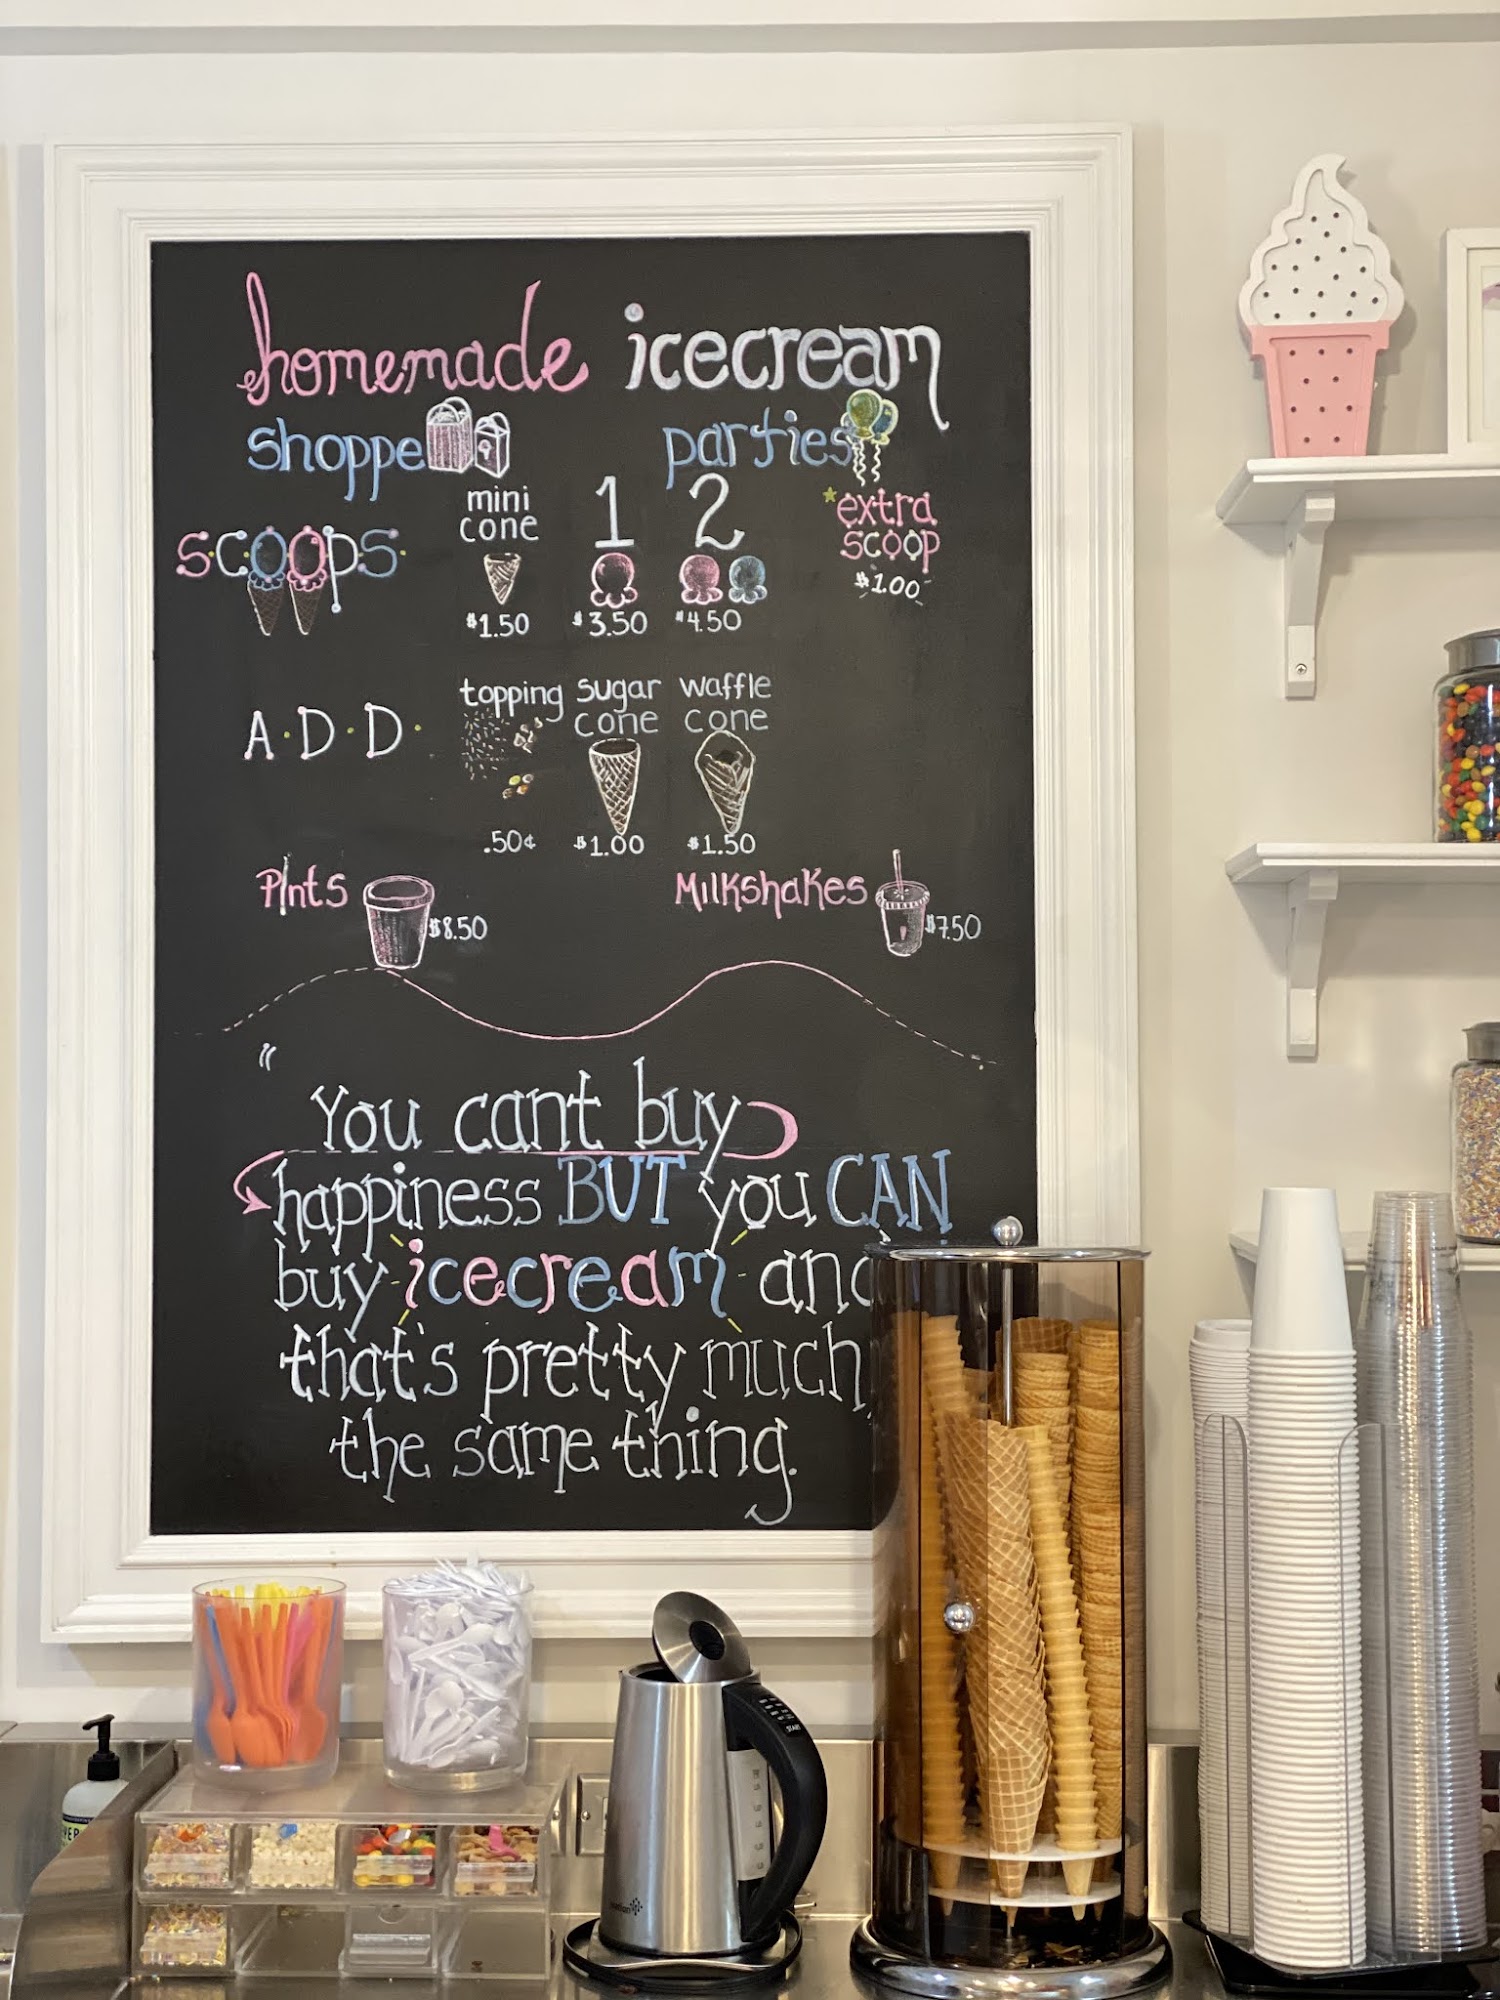 homemade icecream
shoppe parties
SCOOPS.
mini cone
$1.50
1
$3.50
2
$4.50
*extra scoop
$1.00
A·D·D·
topping
.50¢
sugar cone
$1.00
waffle cone
$1.50
Pints $8.50
Milkshakes $7.50
"
You cant buy
happiness BUT you CAN
buy icecream and
that's pretty much
the same thing.
START